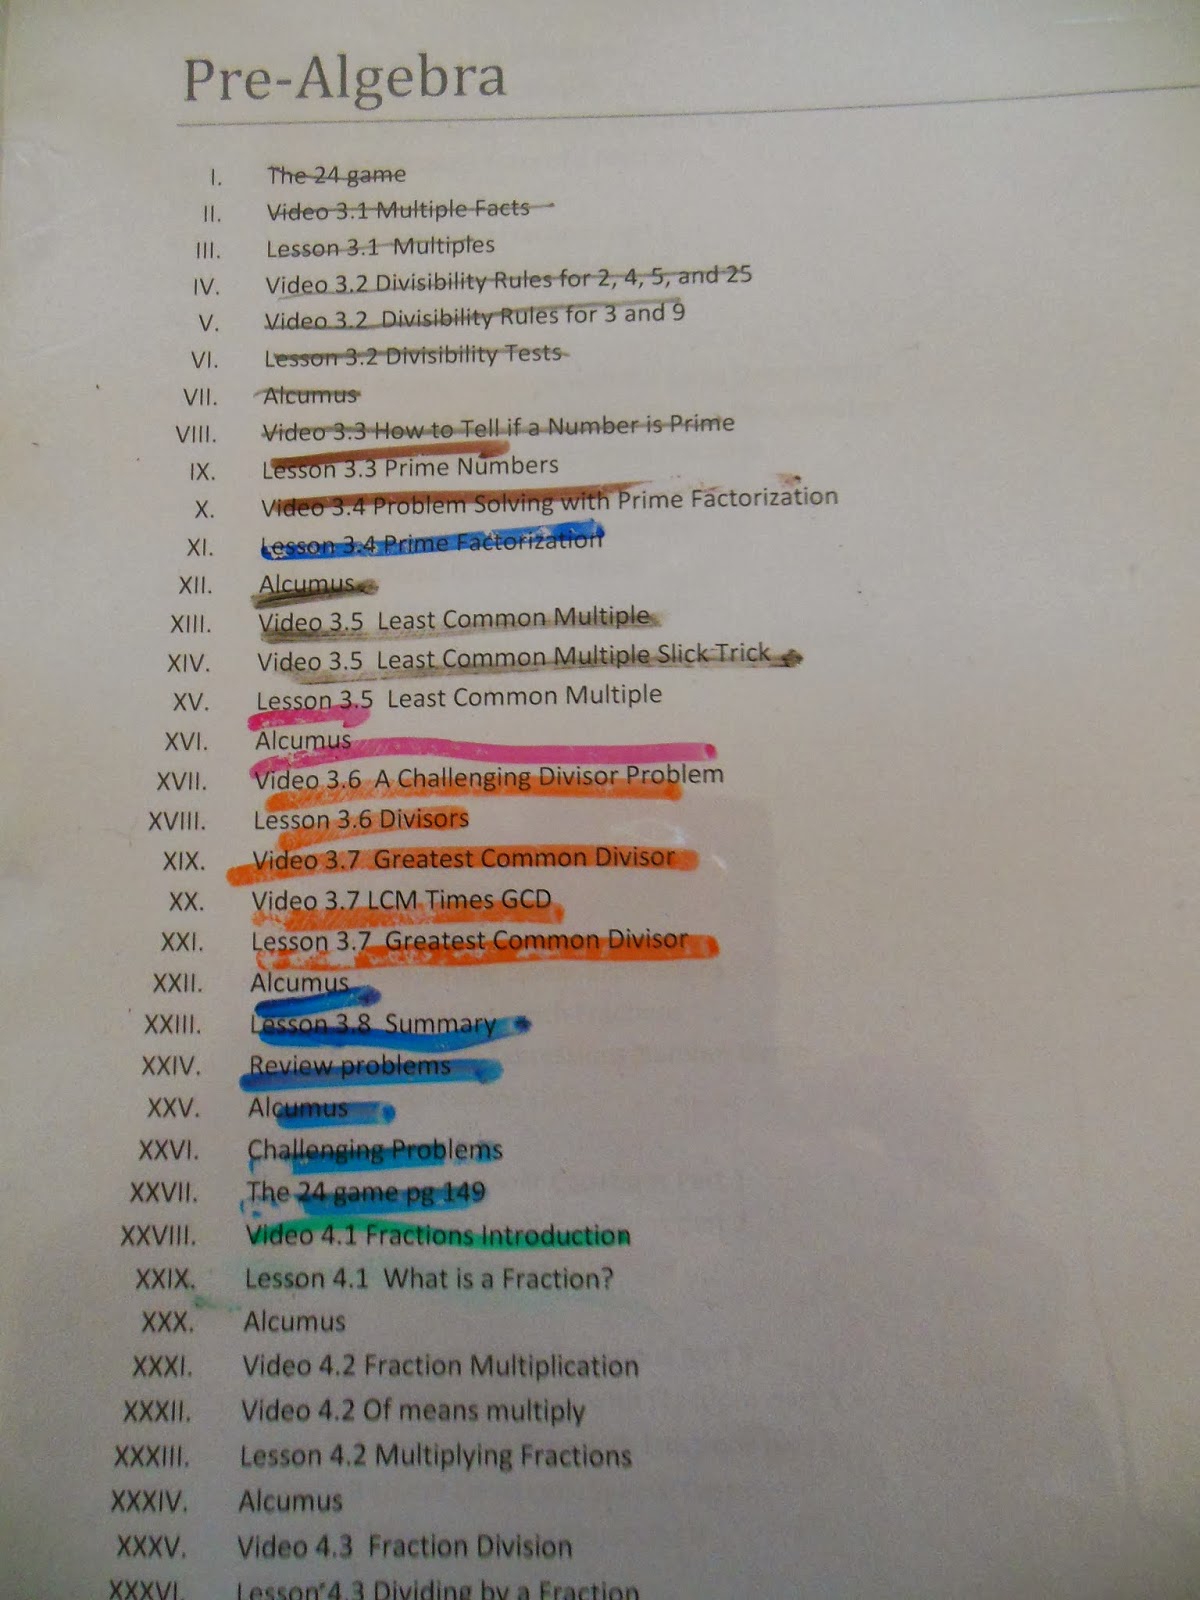 Pre-Algebra
I. The 24 game
II. Video 3.1 Multiple Facts
III. Lesson 3.1 Multiples
IV. Video 3.2 Divisibility Rules for 2, 4, 5, and 25
V. Video 3.2 Divisibility Rules for 3 and 9
VI. Lesson 3.2 Divisibility Tests
VII. Alcumus
VIII. Video 3.3 How to Tell if a Number is Prime
IX. Lesson 3.3 Prime Numbers
X. Video 3.4 Problem Solving with Prime Factorization
XI. Lesson 3.4 Prime Factorization
XII. Alcumus
XIII. Video 3.5 Least Common Multiple
XIV. Video 3.5 Least Common Multiple Slick Trick
XV. Lesson 3.5 Least Common Multiple
XVI. Alcumus
XVII. Video 3.6 A Challenging Divisor Problem
XVIII. Lesson 3.6 Divisors
XIX. Video 3.7 Greatest Common Divisor
XX. Video 3.7 LCM Times GCD
XXI. Lesson 3.7 Greatest Common Divisor
XXII. Alcumus
XXIII. Lesson 3.8 Summary
XXIV. Review problems
XXV. Alcumus
XXVI. Challenging Problems
XXVII. The 24 game pg 149
XXVIII. Video 4.1 Fractions Introduction
XXIX. Lesson 4.1 What is a Fraction?
XXX. Alcumus
XXXI. Video 4.2 Fraction Multiplication
XXXII. Video 4.2 Of means multiply
XXXIII. Lesson 4.2 Multiplying Fractions
XXXIV. Alcumus
XXXV. Video 4.3 Fraction Division
XXXVI. Lesson 4.3 Dividing by a Fraction